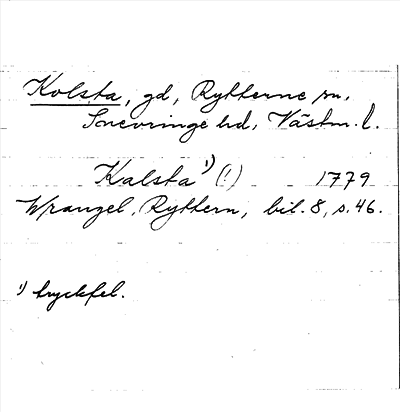 Kolsta, gd, Rytterne sn,
Snevringe hd, Västm. l.
Kalsta¹) (!) 1779
Wrangel, Ryttern, bil. 8, s. 46.
¹) tryckfel.